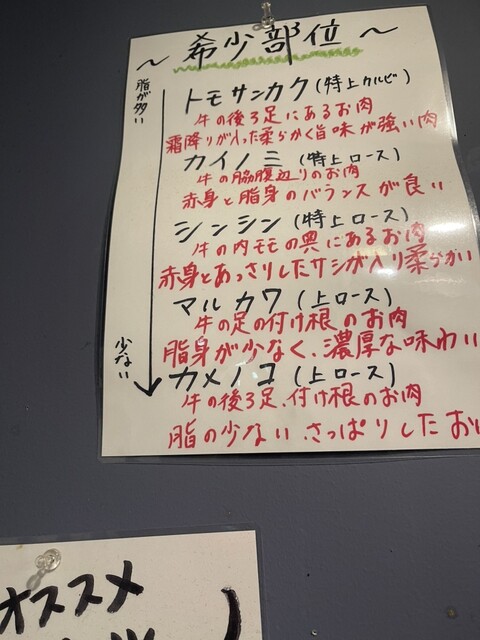 ～ 希少部位 ～
脂が多い
トモサンカク(特上カルビ)
牛の後ろ足にあるお肉
霜降りが入った柔らかく旨味が強い肉
カイノミ(特上ロース)
牛の脇腹辺りのお肉
赤身と脂身のバランスが良い
シンシン(特上ロース)
牛の内モモの奥にあるお肉
赤身とあっさりしたサシが入り柔らかい
マルカワ(上ロース)
牛の足の付け根のお肉
脂身が少なく、濃厚な味わい
少ない
カメノコ(上ロース)
牛の後ろ足、付け根のお肉
脂の少ない、さっぱりしたお
オススメ